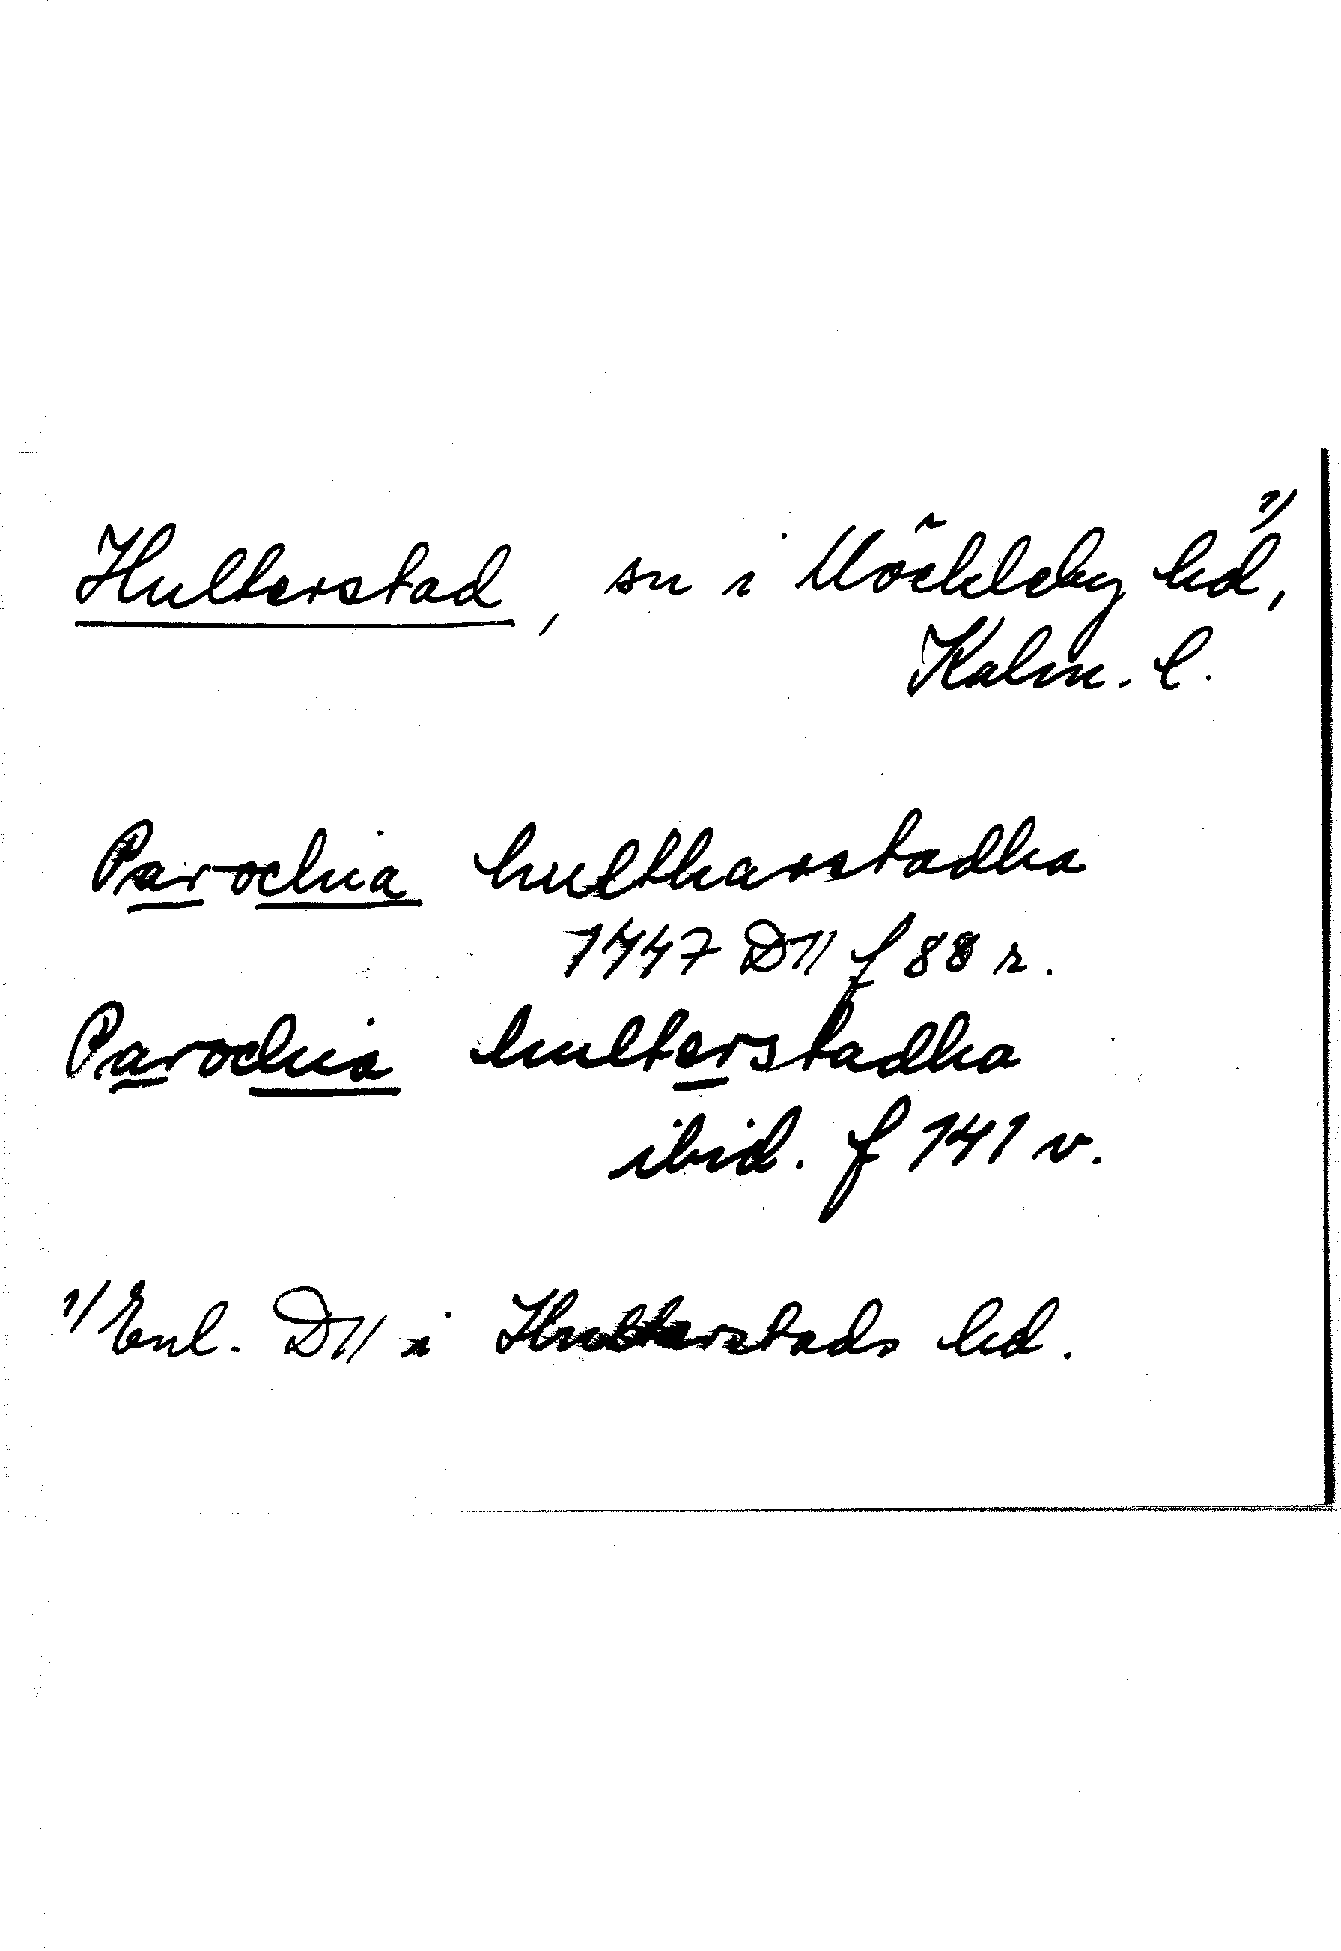 Hulterstad, sn i Möckleby hd, 1/
Kalm. l.
Parochia hultharstadha
1447 D11 f 88 r.
Parochia hulterstadha
ibid. f 141 v.
1/ Enl. D11 i Hulterstads hd.